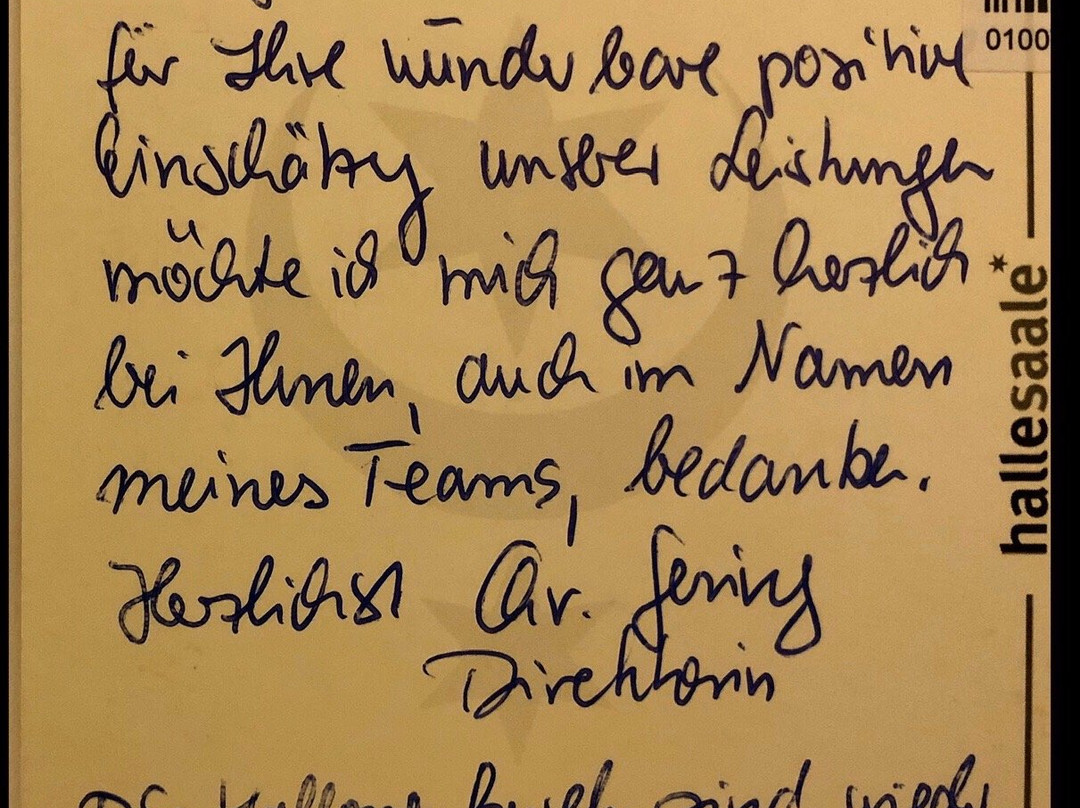 0100
für Ihre wunderbare positive
Einschätzg unserer Leistungen
möchte ich mich ganz herzlich
bei Ihnen, auch im Namen
meines Teams, bedanken.
Herzlichst Chr.
Direktorin
sind wieder
hallesaale*